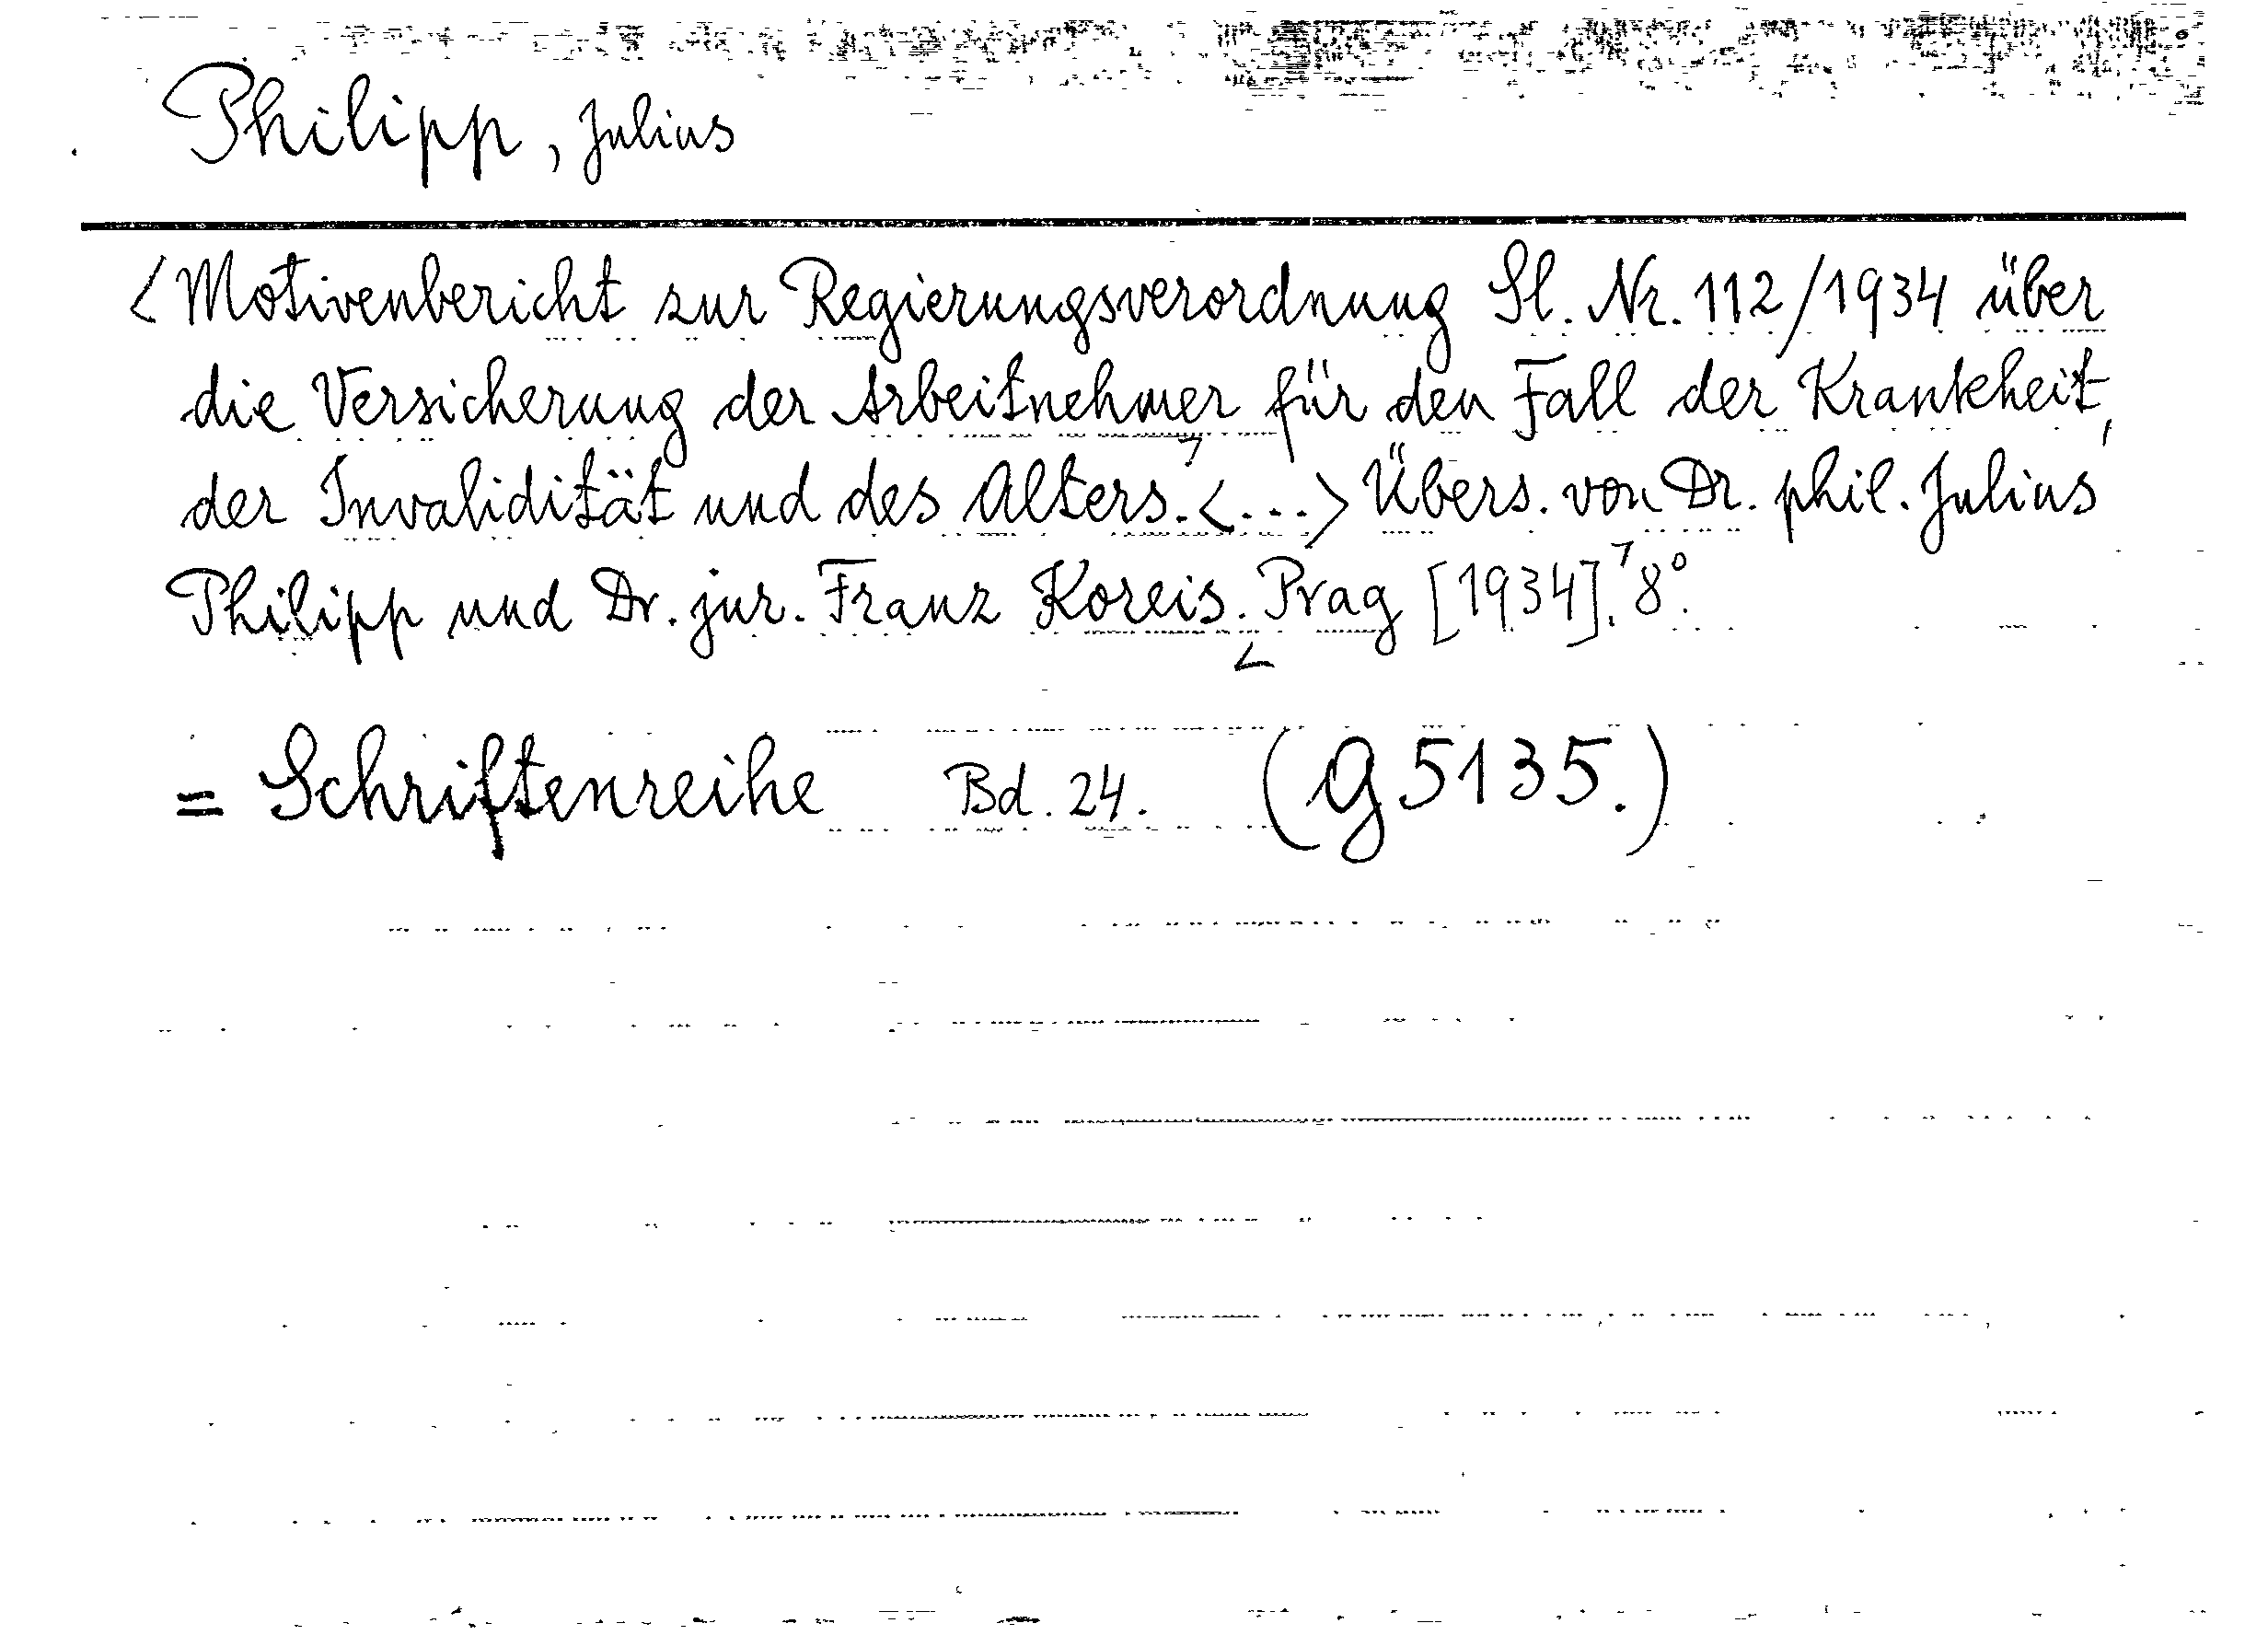 Philipp, Julius
<Motivenbericht zur Regierungsverordnung Sl. Nr. 112/1934 über
die Versicherung der Arbeitnehmer für den Fall der Krankheit,
der Invalidität und des Alters.> <...> Übers. von Dr. phil. Julius
Philipp und Dr. jur. Franz Koreis. <Prag [1934].> 8°.
= Schriftenreihe Bd. 24. (G 5135.)